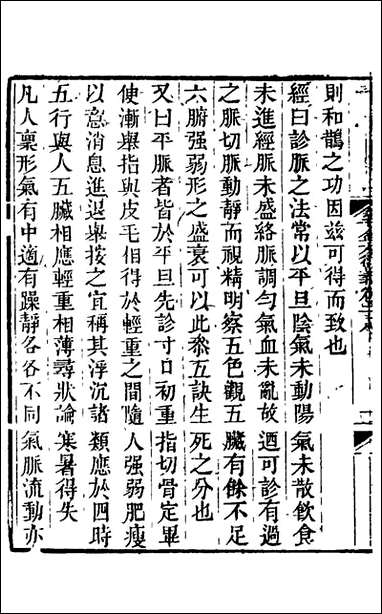 則和鵲之功因茲可得而致也
經曰診脈之法常以平旦陰氣未動陽氣未散飲食
未進經脈未盛終脈調勻氣血未亂故迺可診有過
之脈切脈動靜而視精明察五色觀五臟有餘不足
六腑强弱形之盛衰可以此叅五訣生死之分也
又曰平脈者皆於平旦先診寸口初重指切骨定畢
便漸舉指與皮毛相得於輕重之間隨人强弱肥瘦
以意消息進退舉按之宜稱其浮沉諸類應於四時
五行與人五臟相應輕重相薄尋狀論寒暑得失
凡人稟形氣有中適有躁靜各各不同氣脈流動亦